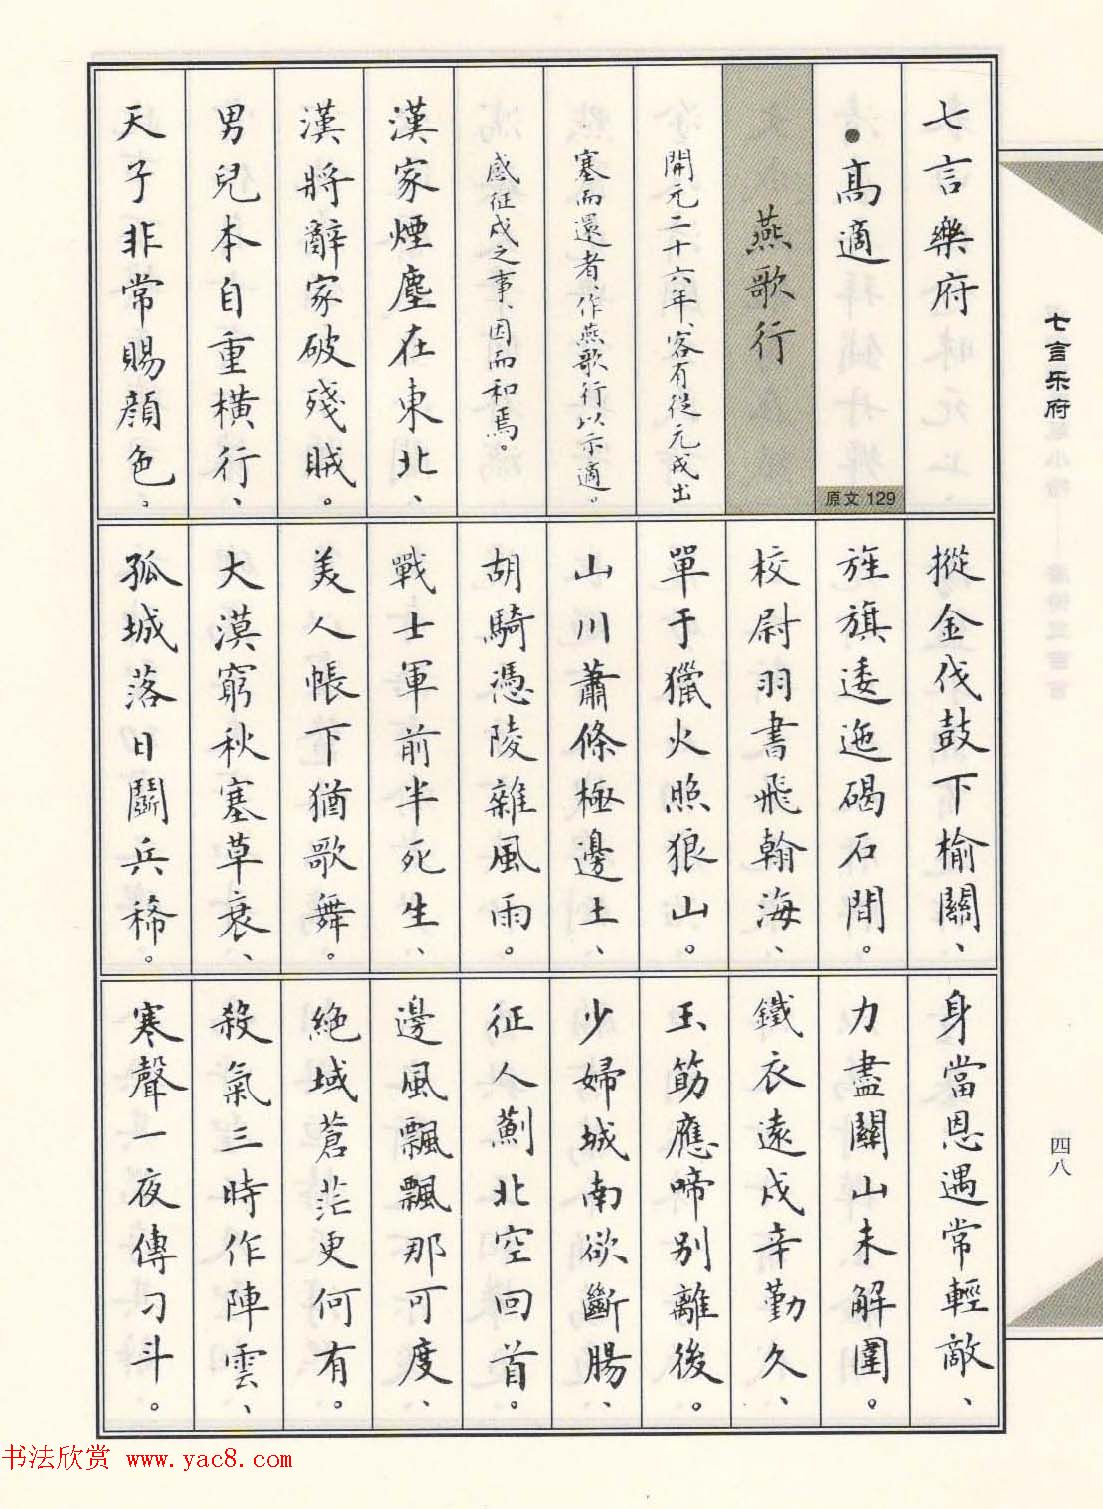 七言樂府
·高適
原文 129
燕歌行
開元二十六年、客有從元戎出
塞而還者、作燕歌行以示適。
感征戍之事、因而和焉。
漢家煙塵在東北、
漢將辭家破殘賊。
男兒本自重橫行、
天子非常賜顔色。
摐金伐鼓下榆關、
旌旗逶迤碣石間。
校尉羽書飛翰海、
單于獵火照狼山。
山川蕭條極邊土、
胡騎憑陵雜風雨。
戰士軍前半死生、
美人帳下猶歌舞。
大漠窮秋塞草衰、
孤城落日鬭兵稀。
身當恩遇常輕敵、
力盡關山未解圍。
鐵衣遠戍辛勤久、
玉筯應啼別離後。
少婦城南欲斷腸、
征人薊北空回首。
邊風飄飄那可度、
絕域蒼茫更何有。
殺氣三時作陣雲、
寒聲一夜傳刁斗。
七言乐府
四八
书法欣赏 www.yac8.com